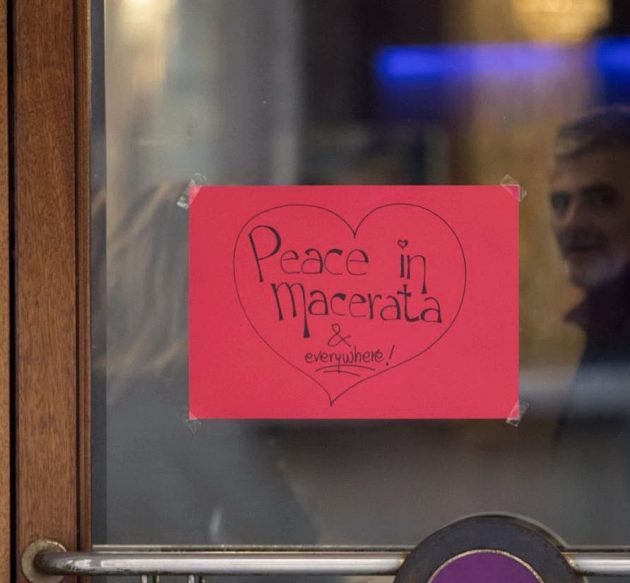 Peace in
macerata
&
everywhere!